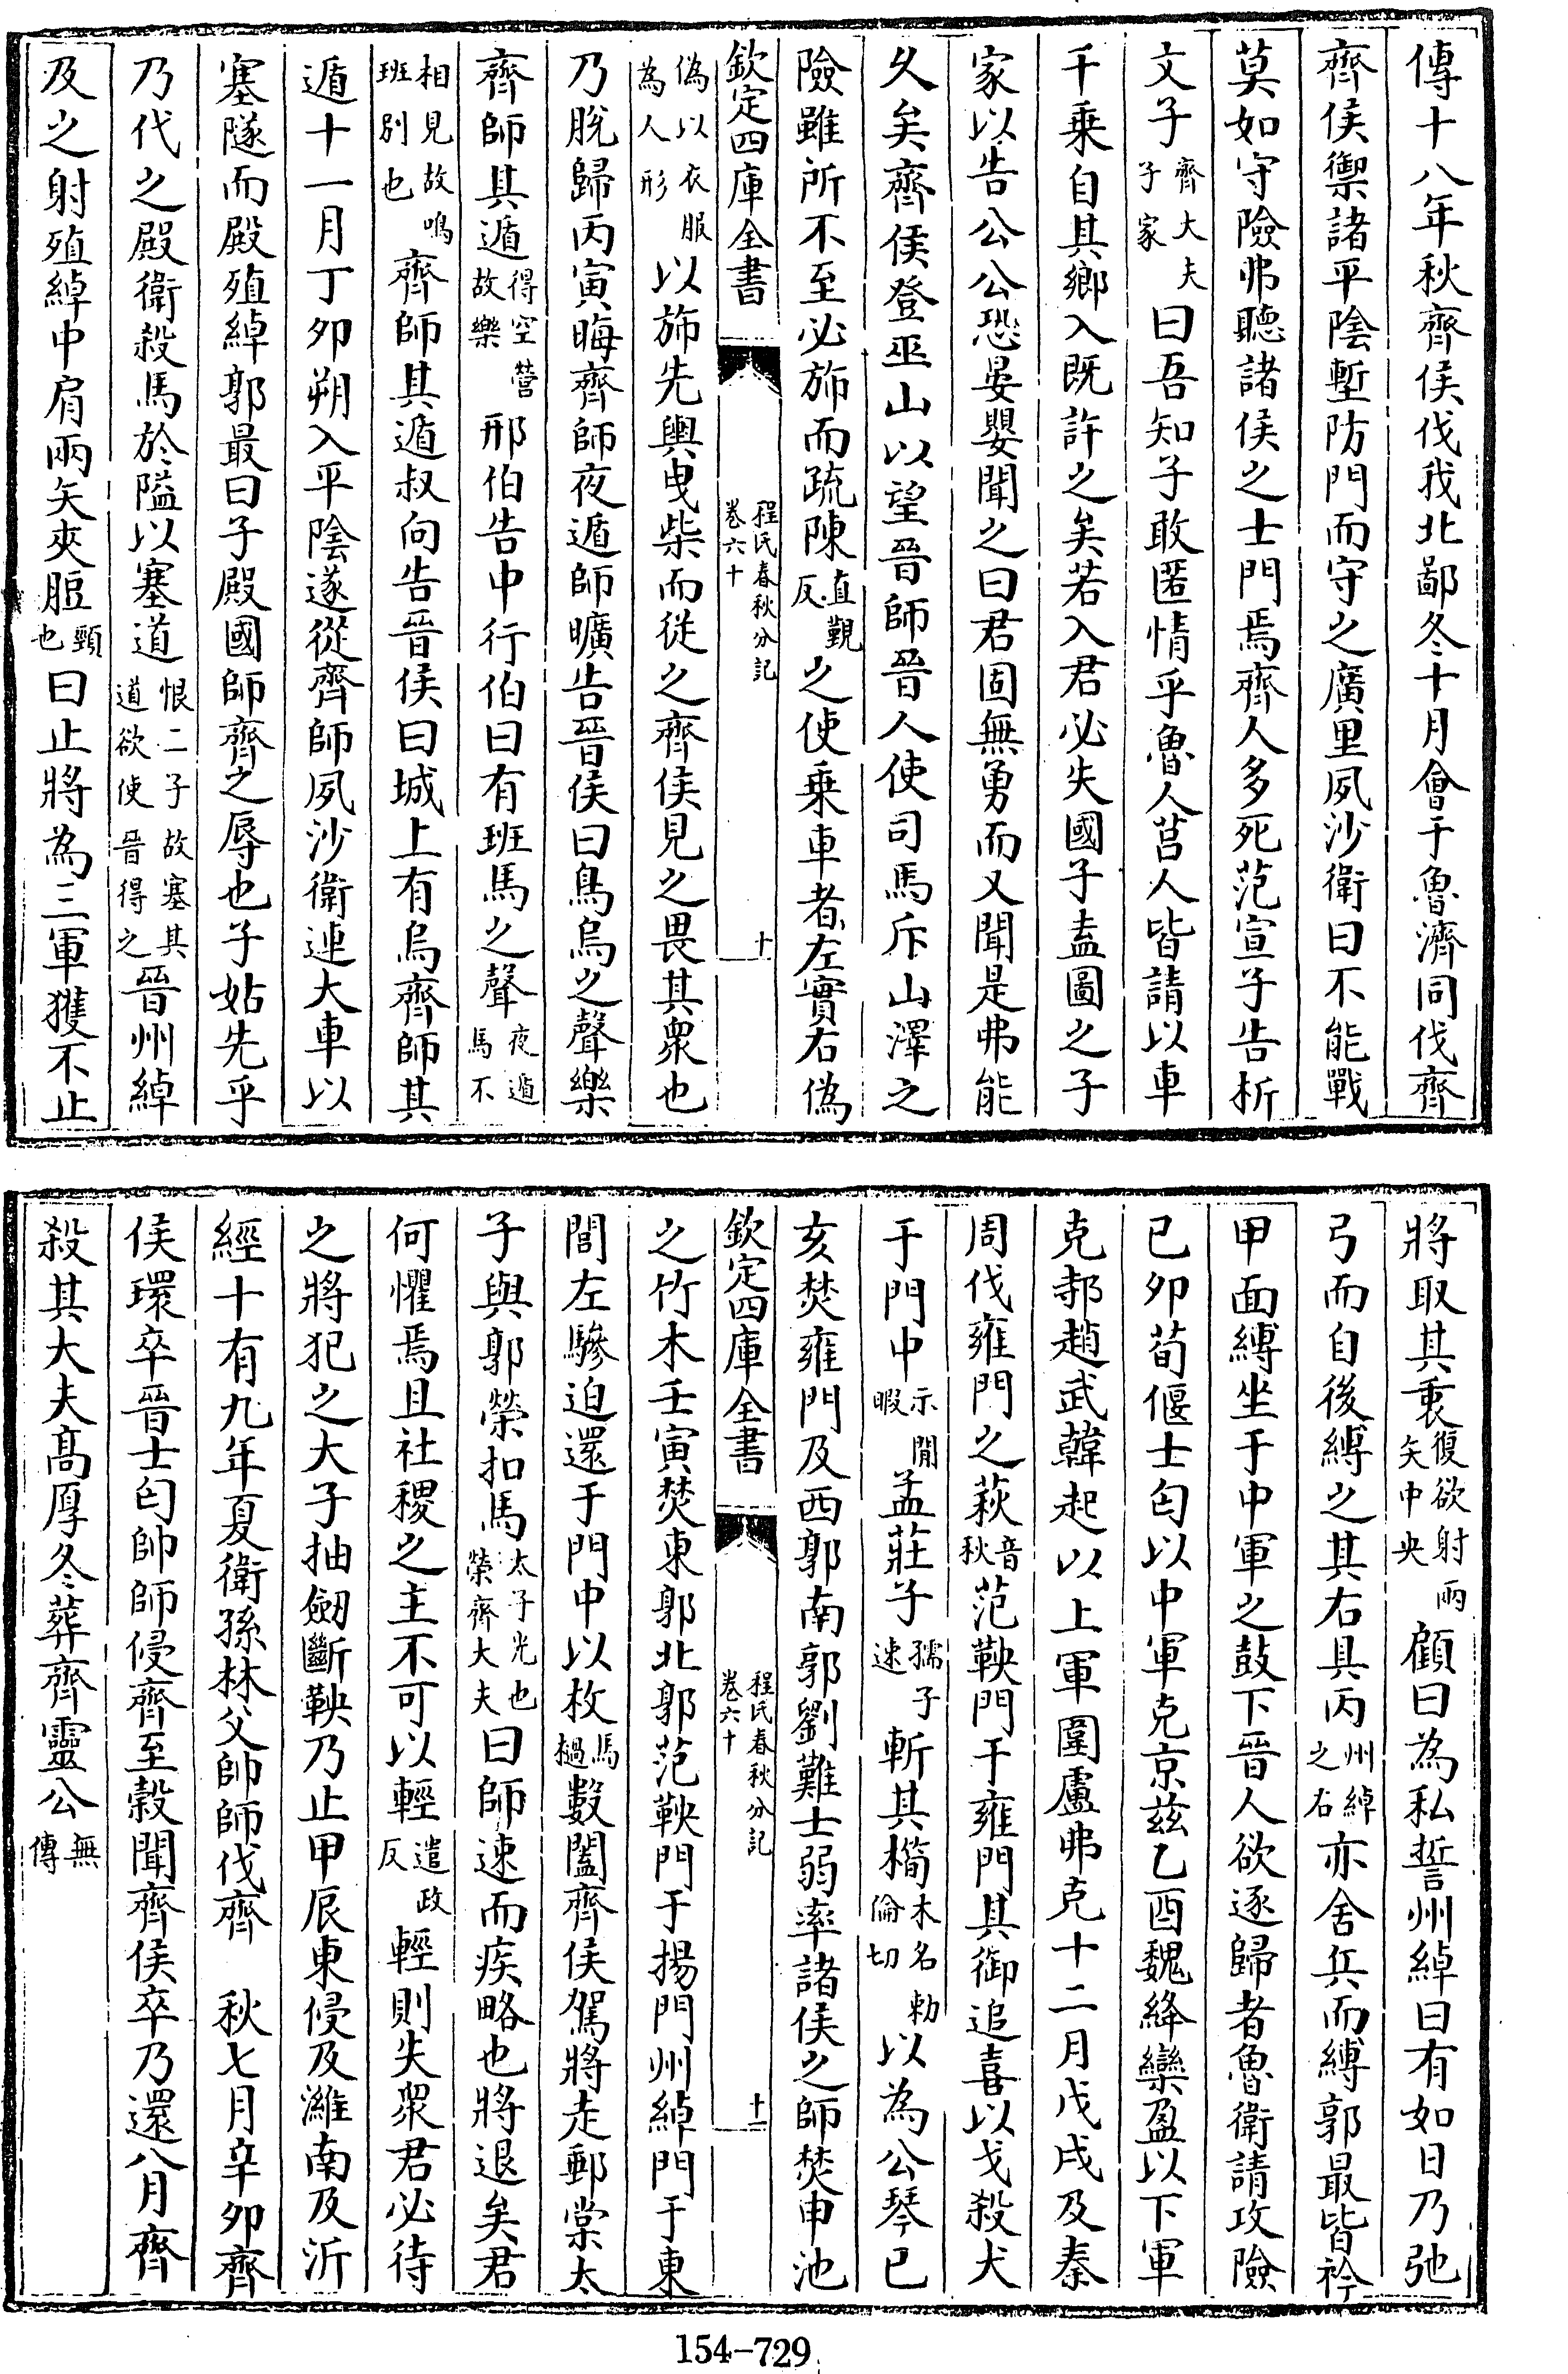 傳十八年秋齊侯伐我北鄙冬十月會于魯濟同伐齊
齊侯禦諸平陰塹防門而守之廣里夙沙衛曰不能戰
莫如守險弗聽諸侯之士門焉齊人多死范宣子告析
文子齊大夫子家曰吾知子敢匿情乎魯人莒人皆請以車
千乗自其鄉入既許之矣若入君必失國子盍圖之子
家以告公公恐晏嬰聞之曰君固無勇而又聞是弗能
久矣齊侯登巫山以望晉師晉人使司馬斥山澤之
險雖所不至必斾而疏陳直觐反之使乗車者左實右偽
欽定四庫全書
程氏春秋分記
卷六十
十
偽以衣服為人形以斾先輿曳柴而從之齊侯見之畏其衆也
乃脫歸丙寅晦齊師夜遁師曠告晉侯曰鳥烏之聲樂
齊師其遁得空營故樂邢伯告中行伯曰有班馬之聲夜遁馬不
相見故鳴班别也齊師其遁叔向告晉侯曰城上有烏齊師其
遁十一月丁夘朔入平陰遂從齊師夙沙衛連大車以
塞隧而殿殖綽郭最曰子殿國師齊之辱也子姑先乎
乃代之殿衛殺馬於隘以塞道恨二子故塞其道欲使晉得之晉州綽
及之射殖綽中肩兩矢夾脰頸也曰止將為三軍獲不止
將取其衷復欲射兩矢中央顧曰為私誓州綽曰有如日乃弛
弓而自後縛之其右具丙州綽之右亦舍兵而縛郭最皆衿
甲面縛坐于中軍之鼓下晉人欲逐歸者魯衛請攻險
已夘荀偃士匄以中軍克京兹乙酉魏絳欒盈以下軍
克邿趙武韓起以上軍圍盧弗克十二月戊戌及秦
周伐雍門之萩音秋范鞅門于雍門其御追喜以戈殺犬
于門中示閒暇孟莊子孺子速斬其橁木名勅倫切以為公琴已
亥焚雍門及西郭南郭劉難士弱率諸侯之師焚申池
欽定四庫全書
程氏春秋分記
卷六十
十一
之竹木壬寅焚東郭北郭范鞅門于揚門州綽門于東
閭左驂迫還于門中以枚馬檛數闔齊侯駕將走郵棠太
子與郭榮扣馬太子光也榮齊大夫曰師速而疾略也將退矣君
何懼焉且社稷之主不可以輕遣政反輕則失衆君必待
之將犯之大子抽劒斷鞅乃止甲辰東侵及濰南及沂
經十有九年夏衛孫林父帥師伐齊　秋七月辛夘齊
侯環卒晉士匄帥師侵齊至穀聞齊侯卒乃還八月齊
殺其大夫髙厚冬葬齊靈公無傳
154-729